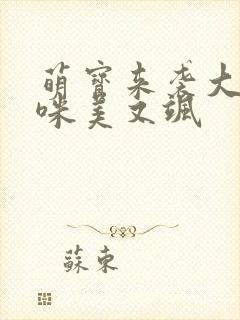 萌寶來襲大
咪美又颯
蘇東